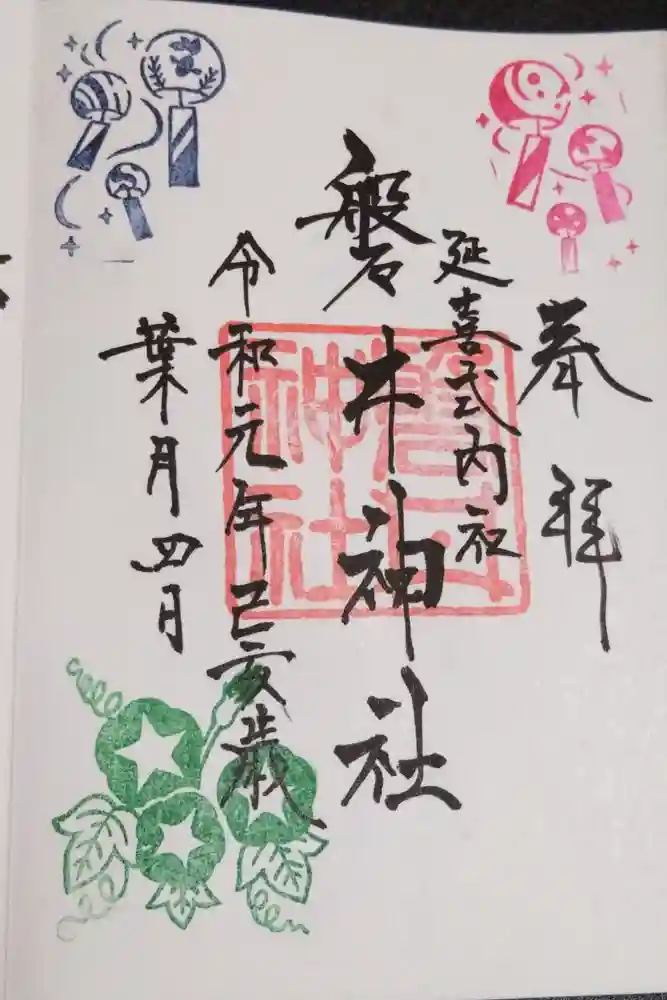 奉拝
延喜式内社
磐井神社
令和元年己亥歳
葉月四日
磐井神社